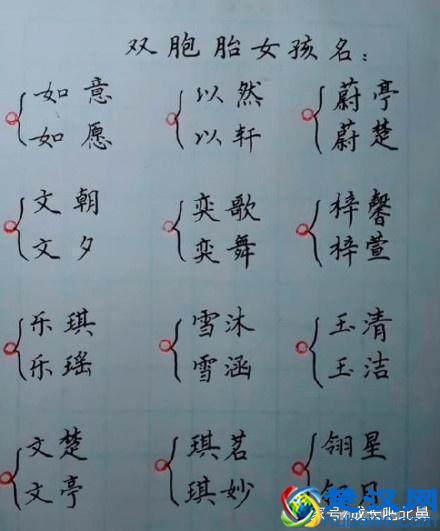 双胞胎女孩名：
如意 以然 蔚亭
如愿 以轩 蔚楚
文朝 奕歌 梓馨
文夕 奕舞 梓萱
乐琪 雪沐 玉清
乐瑶 雪涵 玉洁
文楚 琪茗 翎星
文亭 琪妙